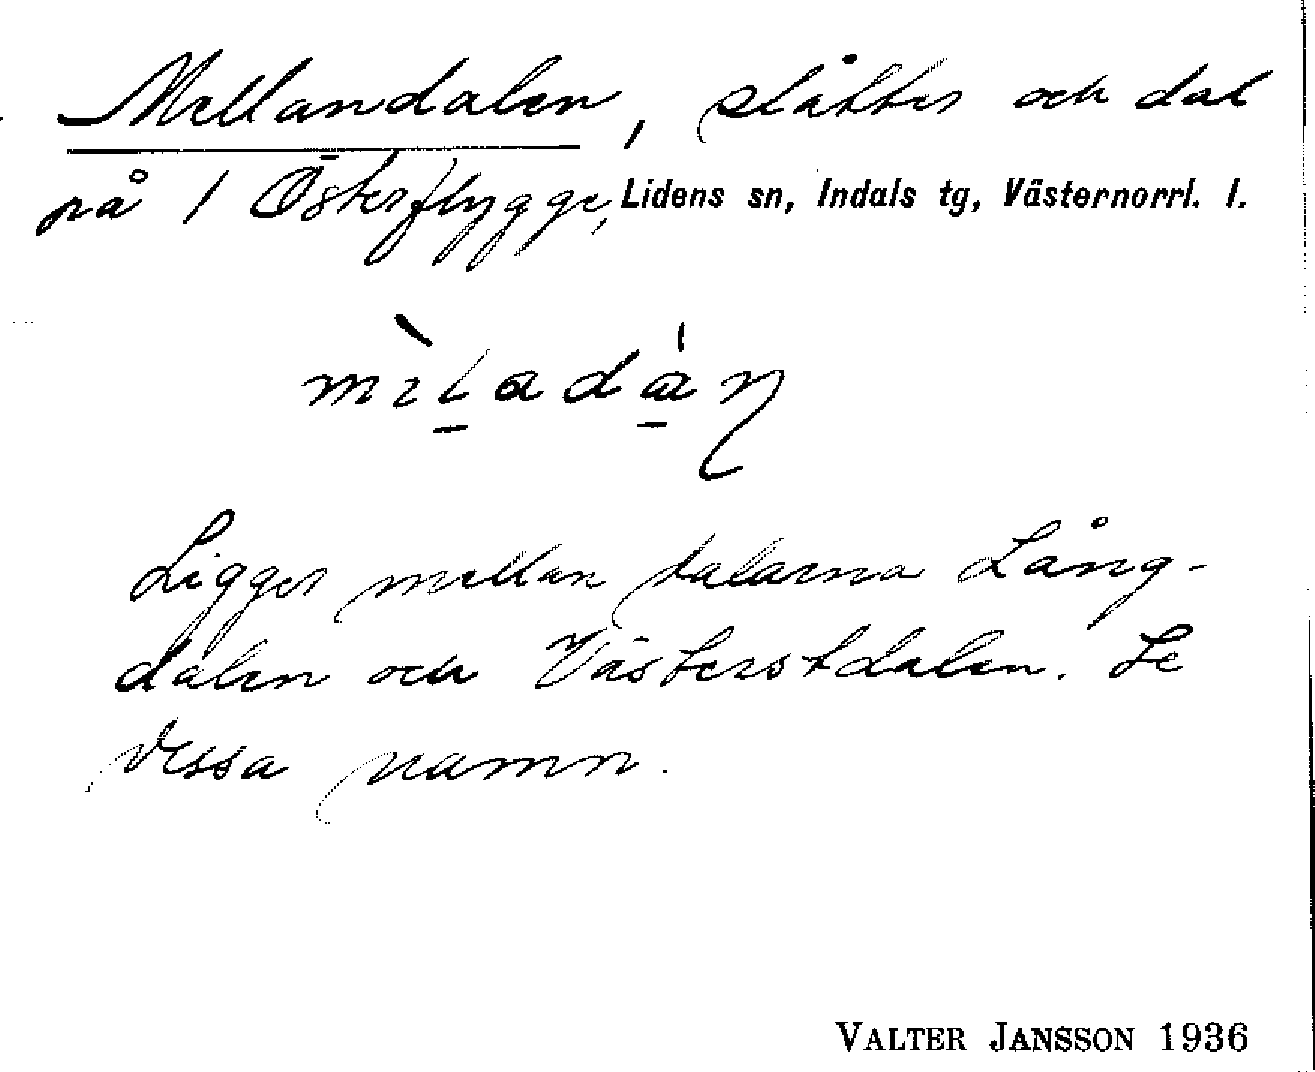 Mellandalen, slåtter och dal
på 1 Österflygge, Lidens sn, Indals tg, Västernorrl. l.
Ligger mellan dalarna Lång-
dalen och Västerstdalen. Se
dessa namn.
VALTER JANSSON 1936